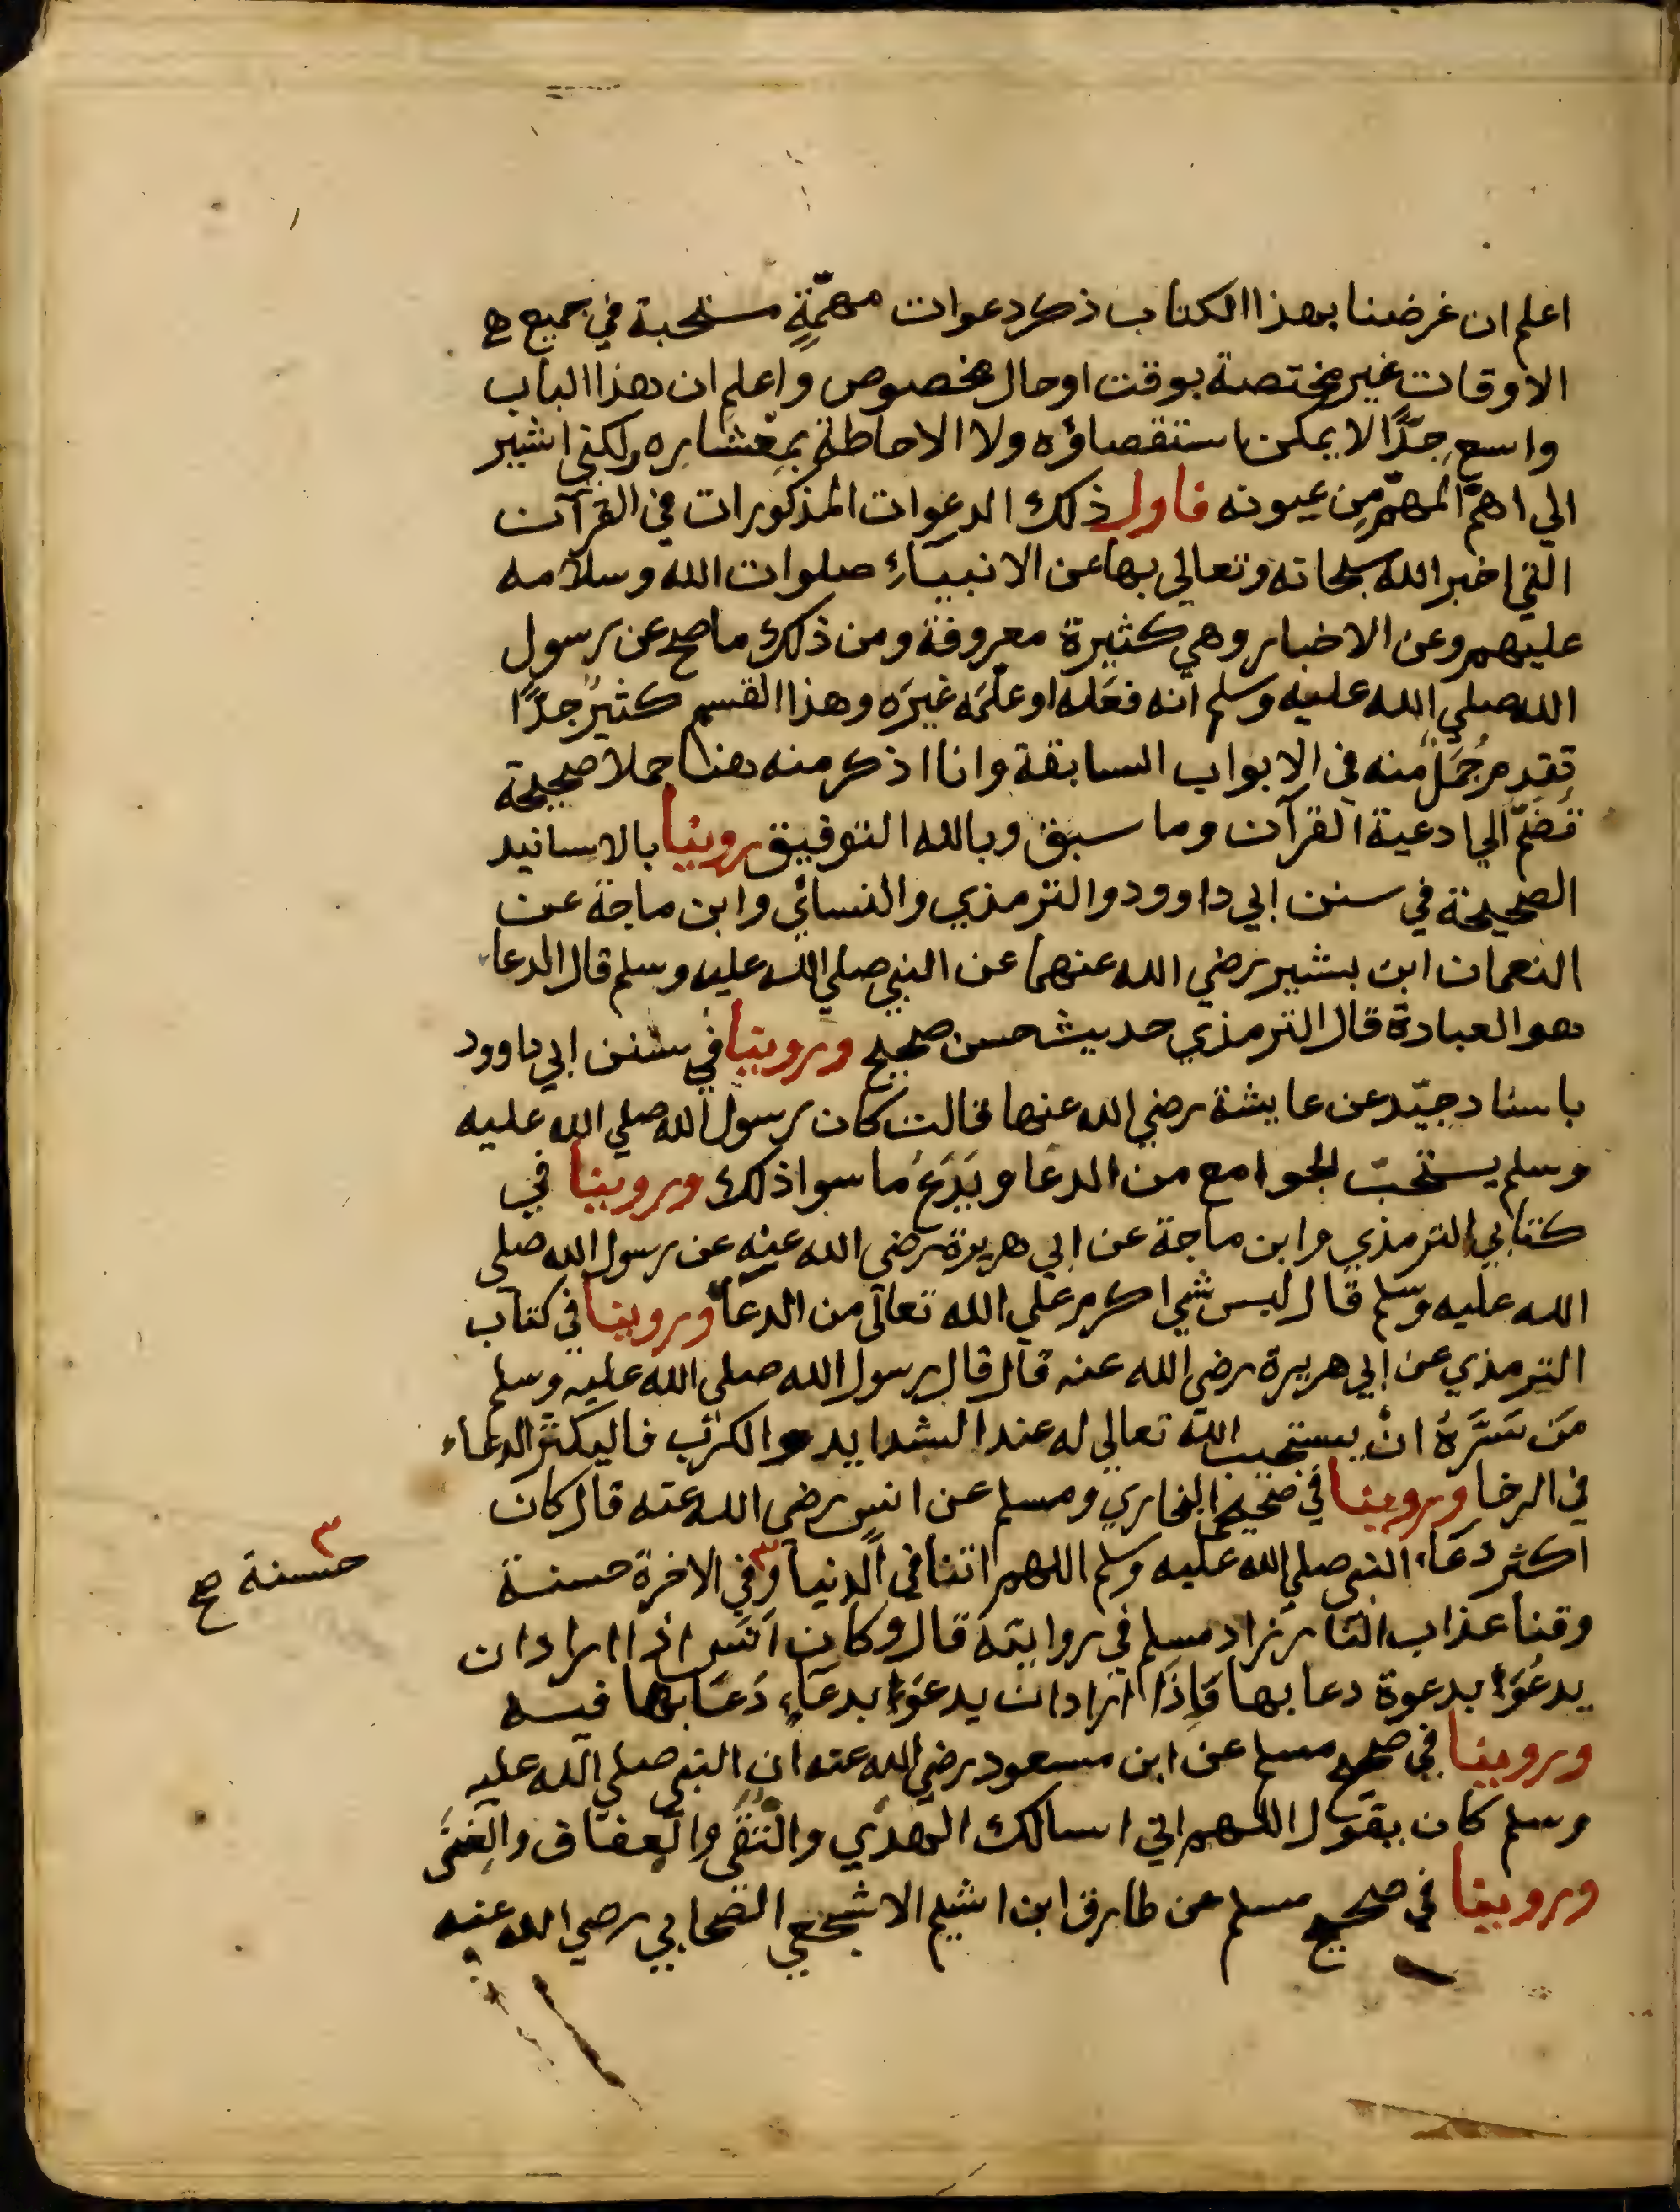 اعلم ان غرضنا بهذا الكتاب ذكر دعوات مهمّةٍ مستحبة في جميع
الاوقات غير مختصة بوقت او حال مخصوص واعلم ان هذا الباب
واسع جِدًّا لا يمكن استقصاؤه ولا الاحاطة بمِعْشاره ولكني اشير
الي اهمّ المهمّ مِن عيونه فاول ذلك الدعوات المذكورات في القرآن
التي اخبر الله سبحانه وتعالي بها عن الانبيآءِ صلوات الله وسلامه
عليهم وعن الاخيار وهي كثيرة معروفة ومن ذلك ما صح عن رسول
الله صلي الله عليه وسلم انه فعَله او علَّمَه غيرَه وهذا القسم كثيرٌ جدًّا
تقدم جُمَلٌ منه في الابواب السابقة وانا اذكر منه هنا جملا صحيحة
تُضَمّ الي ادعية القرآن وما سبق وبالله التوفيق روينا بالاسانيد
الصحيحة في سنن ابي داوود والترمذي والنسائي وابن ماجة عن
النعمان ابن بشير رضي الله عنهما عن النبي صلي الله عليه وسلم قال الدعاء
هو العبادة قال الترمذي حديث حسن صحيح وروينا في سنن ابي داوود
باسناد جيّد عن عايشة رضي الله عنها قالت كان رسول الله صلي الله عليه
وسلم يستحبّ الجوامع من الدعا ويَدَعُ ما سوا ذلك وروينا في
كتابي الترمذي وابن ماجة عن ابي هريرة رضي الله عنه عن رسول الله صلي
الله عليه وسلم قال ليس شي اكرم علي الله تعالي من الدعآء وروينا في كتاب
الترمذي عن ابي هريرة رضي الله عنه قال قال رسول الله صلي الله عليه وسلم
مَن سَرَّهُ انْ يستجيب الله تعالي له عند الشدايد والكرب فاليكثر الدعاء
في الرخا وروينا في صحيحي البخاري ومسلم عن انس رضي الله عنه قال كان
اكثر دعآء النبي صلي الله عليه وسلم اللهم اتنا في الدنيا ٣ وفي الاخرة حسنة
٣ حسنة صح
وقنا عذاب النار زاد مسلم في روايته قال وكان انَسٌ اذا اراد ان
يدعُوَا بدعوة دعا بها فَاِذَا اراد ان يدعوَا بدعآءٍ دَعَا بها فيه
وروينا في صحيح مسلم عن ابن مسعود رضي الله عنه ان النبي صلي الله عليه
وسلم كان يقول اللهم اني اسالك الهدي والتقى والعفاف والغِنَى
وروينا في صحيح مسلم عن طارق ابن اشيم الاشجعي الصحابي رضي الله عنه